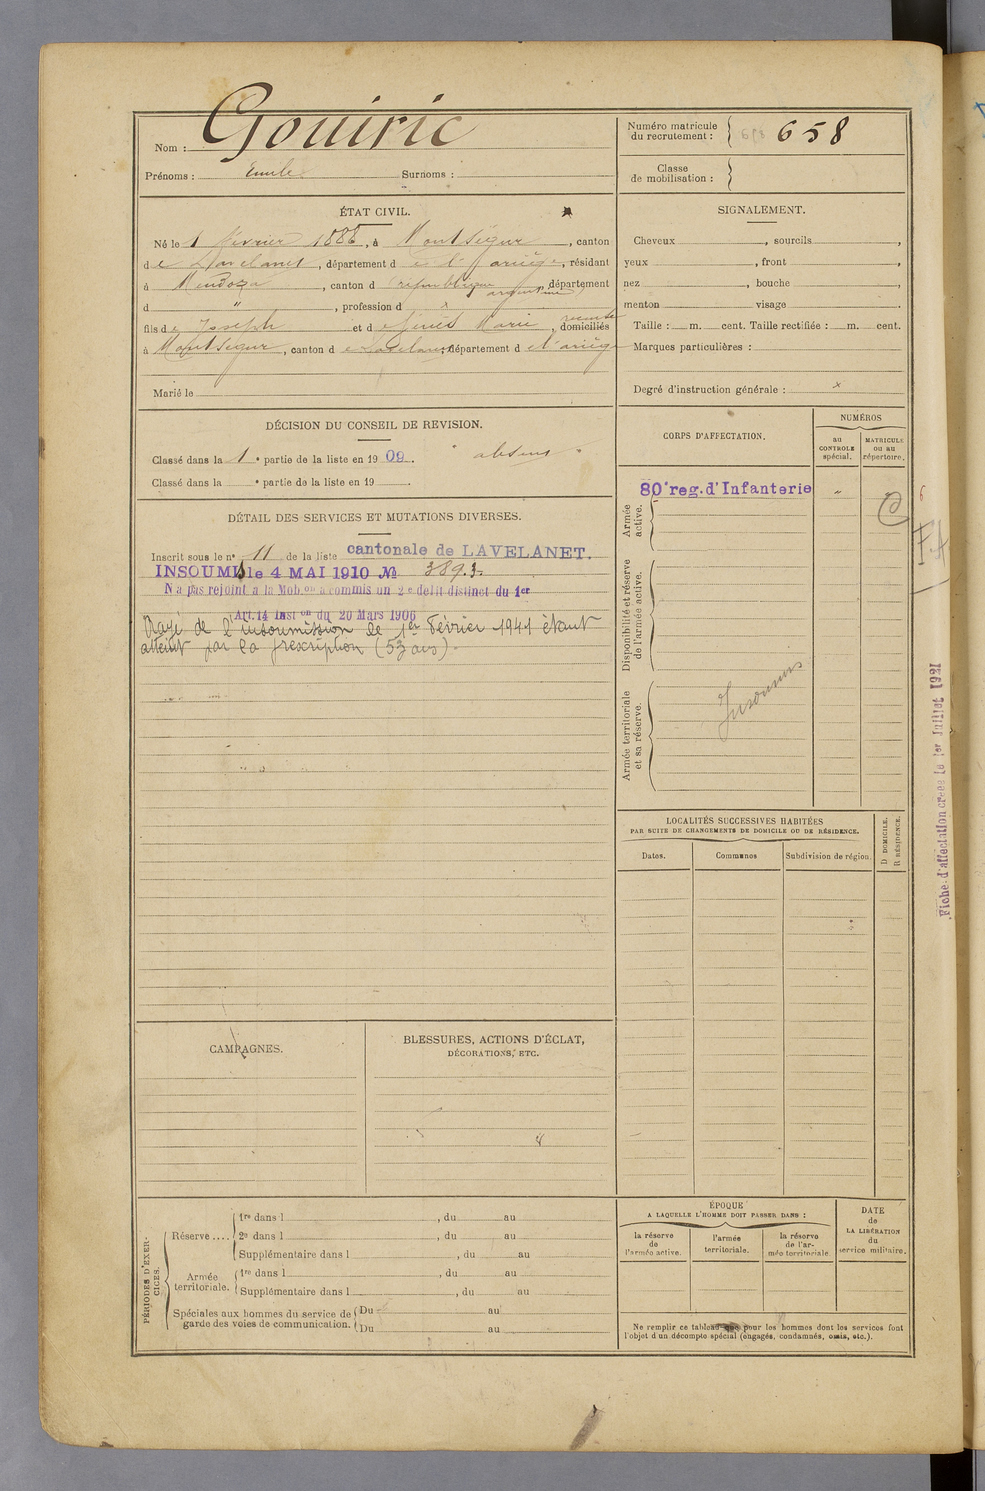 Nom : Gouiric
Prénoms : Emile Surnoms :
Numéro matricule du recrutement : 658
Classe de mobilisation :
ÉTAT CIVIL.
Né le 1 février 1888, à Montségur, canton
de Lavelanet, département de l'Ariège, résidant
à Mendoza, canton d république argentine, département
d " , profession d x
fils de Joseph et de Marie, domiciliés
à Montségur, canton de Lavelanet, département de l'ariège
Marié le
SIGNALEMENT.
Cheveux , sourcils ,
yeux , front ,
nez , bouche ,
menton visage .
Taille : m. cent. Taille rectifiée : m. cent.
Marques particulières :
Degré d'instruction générale : x
DÉCISION DU CONSEIL DE REVISION.
Classé dans la 1e partie de la liste en 1909. " absent "
Classé dans la e partie de la liste en 19 .
DÉTAIL DES SERVICES ET MUTATIONS DIVERSES.
Inscrit sous le n° 11 de la liste cantonale de LAVELANET.
INSOUMIS le 4 MAI 1910 No 389.3.
N'a pas rejoint a la Mob.on a commis un 2e delit distinct du 1er
Art.14 Inst on du 20 Mars 1906
Rayé de l'insoumission le 1er Février 1941 étant
atteint par la prescription (53 ans).
CORPS D'AFFECTATION.
NUMÉROS
au CONTROLE spécial.
MATRICULE ou au répertoire.
80e reg. d'Infanterie " "
Armée active.
Disponibilité et réserve de l'armée active.
Armée territoriale et sa réserve.
Insoumis
6
FA
Fiche d'affectation créée le 1er Juillet 1921
LOCALITÉS SUCCESSIVES HABITÉES
PAR SUITE DE CHANGEMENTS DE DOMICILE OU DE RÉSIDENCE.
Dates. Communes Subdivision de région.
D DOMICILE.
R RÉSIDENCE.
CAMPAGNES.
BLESSURES, ACTIONS D'ÉCLAT,
DÉCORATIONS, ETC.
PÉRIODES D'EXERCICES.
Réserve ....
1re dans l , du au
2e dans l , du au
Supplémentaire dans l , du au
Armée territoriale.
1re dans l , du au
Supplémentaire dans l , du au
Spéciales aux hommes du service de
garde des voies de communication.
Du au
Du au
ÉPOQUE
A LAQUELLE L'HOMME DOIT PASSER DANS :
la réserve de l'armée active.
l'armée territoriale.
la réserve de l'armée territoriale.
DATE de LA LIBÉRATION du service militaire.
Ne remplir ce tableau que pour les hommes dont les services font
l'objet d'un décompte spécial (engagés, condamnés, omis, etc.).